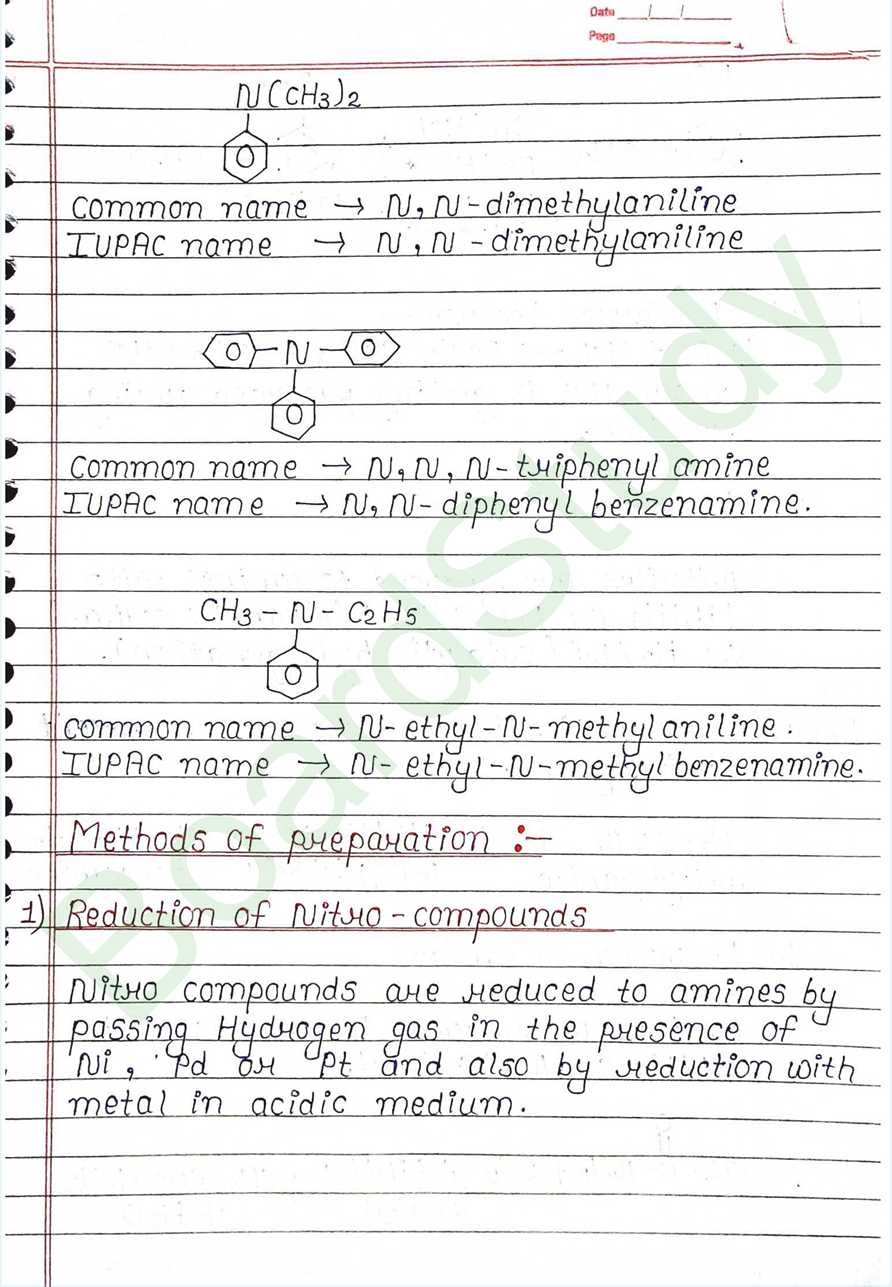 Date / /
Page
N(CH3)2
Common name → N, N-dimethylaniline
IUPAC name → N, N - dimethylaniline
N
Common name → N, N, N-triphenyl amine
IUPAC name → N, N- diphenyl benzenamine.
CH3 - N - C2H5
common name → N- ethyl-N- methyl aniline.
IUPAC name → N- ethyl-N-methyl benzenamine.
Methods of preparation :-
1) Reduction of Nitro-compounds
Nitro compounds are reduced to amines by
passing Hydrogen gas in the presence of
Ni, Pd or Pt and also by reduction with
metal in acidic medium.
BoardStudy